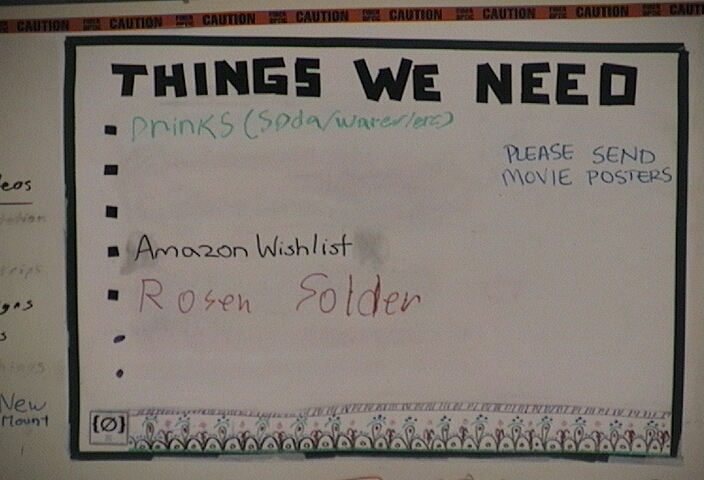 CAUTION CAUTION CAUTION CAUTION CAUTION CAUTION CAUTION CAUTION
THINGS WE NEED
Drinks (Soda/water/etc)
PLEASE SEND
MOVIE POSTERS
Amazon Wishlist
Rosen Solder
{Ø}
New
Mount